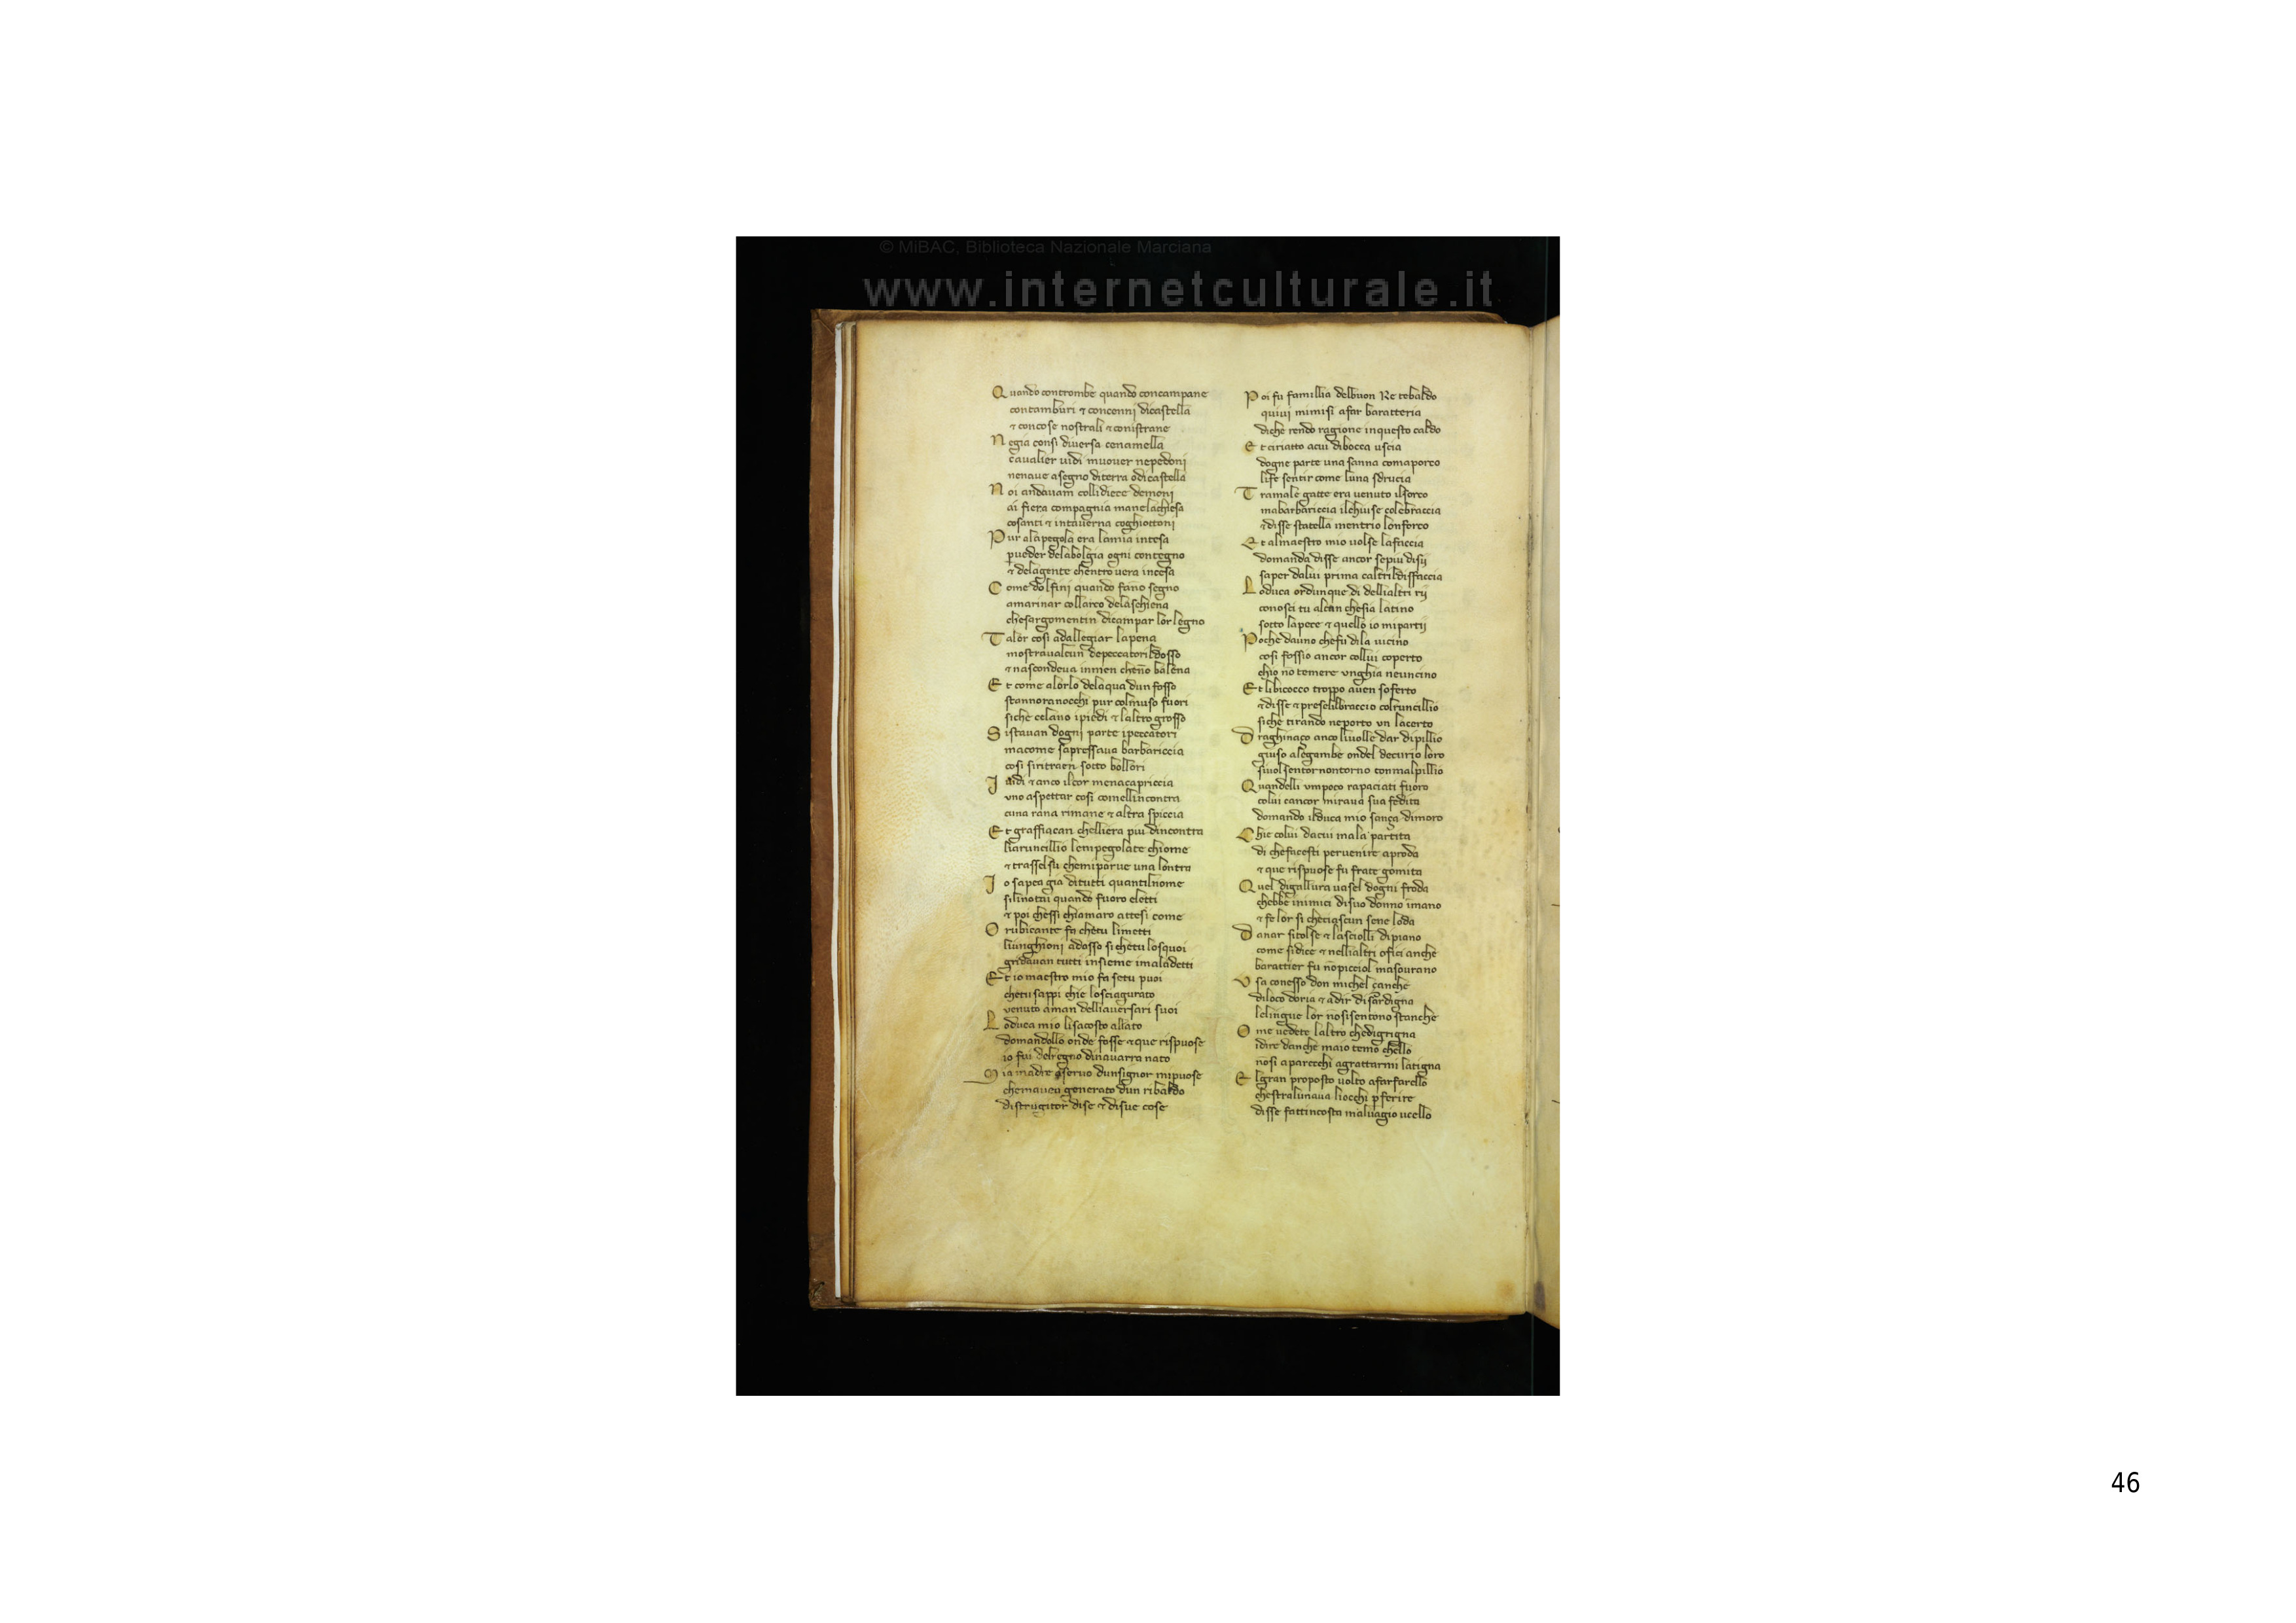 © MiBAC, Biblioteca Nazionale Marciana
www.internetculturale.it
Quando contrombe quando concampane
contamburi ⁊ concenni dicastella
⁊ concose nostrali ⁊ conistrane
Negia consi diuersa cenamella
caualier uidi muouer nepedoni
nenaue asegno diterra odicastella
Noi andauam collidiece demoni
ai fiera compagnia manelachiesa
cosanti ⁊ intauerna coghiottoni
Pur alapegola era lamia intesa
pueder delabolgia ogni contegno
⁊ delagente chentro uera incesa
Come dolfini quando fano segno
amarinar collarco delaschiena
chesargomentin dicampar lor legno
Talor cosi adallegiar lapena
mostraualcun depeccatorildosso
⁊ nascondeua inmen cheno balena
Et come alorlo delaqua dun fosso
stannoranocchi pur colmuso fuori
siche celano ipiedi ⁊ laltro grosso
Sistauan dogni parte ipeccatori
macome sapressaua barbariccia
cosi siritraen sotto bollori
Iuidi ⁊ anco ilcor menacapriccia
uno aspettar cosi comellincontra
cuna rana rimane ⁊ altra spiccia
Et graffiacan chelliera piu dincontra
liaruncillio lempegolate chiome
⁊ trasselsu chemiparue una lontra
Io sapea gia ditutti quantilnome
silinotai quando fuoro eletti
⁊ poi chessi chiamaro attesi come
O rubicante fa chetu limetti
liunghioni adosso si chetu loscuoi
gridauan tutti insieme imaladetti
Et io maestro mio fa setu puoi
chetu sappi chie losciagurato
uenuto aman delliauersari suoi
Loduca mio lisacosto allato
domandollo onde fosse ⁊ que rispuose
io fui delregno dinauarra nato
Mia madre aseruo dunsignor mipuose
chemauea generato dun ribaldo
distrugitor dise ⁊ disue cose
Poi fu famillia delbuon Re tebaldo
quiui mimisi afar baratteria
diche rendo ragione inquesto caldo
Et ciriatto acui dibocca uscia
dogne parte una sanna comaporco
life sentir come luna sdrucia
Tramale gatte era uenuto ilsorco
mabarbariccia ilchiuse colebraccia
⁊ disse statella mentrio lonforco
Et almaestro mio uolse lafaccia
domanda disse ancor sepiu disij
saper dalui prima caltrildisfaccia
Loduca ordunque di dellialtri rij
conosci tu alcun chesia latino
sotto lapece ⁊ quello io mipartij
Poche dauno chefu dila uicino
cosi fossio ancor collui coperto
chio no temere unghia neuncino
Et libicocco troppo auen soferto
⁊ disse ⁊ preselilbraccio colruncillio
siche tirando neporto un lacerto
Draghinaço anco liuolle dar dipillio
giuso alegambe ondel decurio loro
siuolsentornontorno conmalpillio
Quandelli umpoco rapaciati fuoro
colui cancor miraua sua fedita
domando ilduca mio sança dimoro
Chie colui dacui mala partita
di chefacesti peruenire aproda
⁊ que rispuose fu frate gomita
Quel digallura uasel dogni froda
chebbe inimici disuo donno imano
⁊ fe lor si checiascun sene loda
Danar sitolse ⁊ lasciolli dipiano
come sidice ⁊ nellialtri ofici anche
barattier fu nopicciol masourano
Usa conesso don michel çanche
diloco doria ⁊ adir disardigna
lelingue lor nosisentono stanche
Ome uedete laltro chedigrigna
idire danche maio temo chello
nosi aparecchi agrattarmi latigna
Elgran proposto uolto afarfarello
chestralunaua liocchi pferire
disse fattincosta maluagio ucello
46